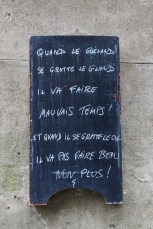 QUAND LE GOÉLAND
SE GRATTE LE GLAND
IL VA FAIRE
MAUVAIS TEMPS!
ET QUAND IL SE GRATTE LE CUL
IL VA PAS FAIRE BEAU
NON PLUS!